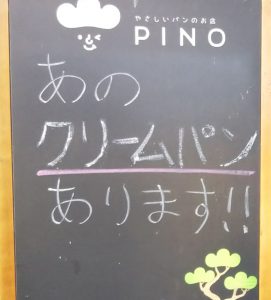 やさしいパンのお店
PINO
あの
クリームパン
あります!!